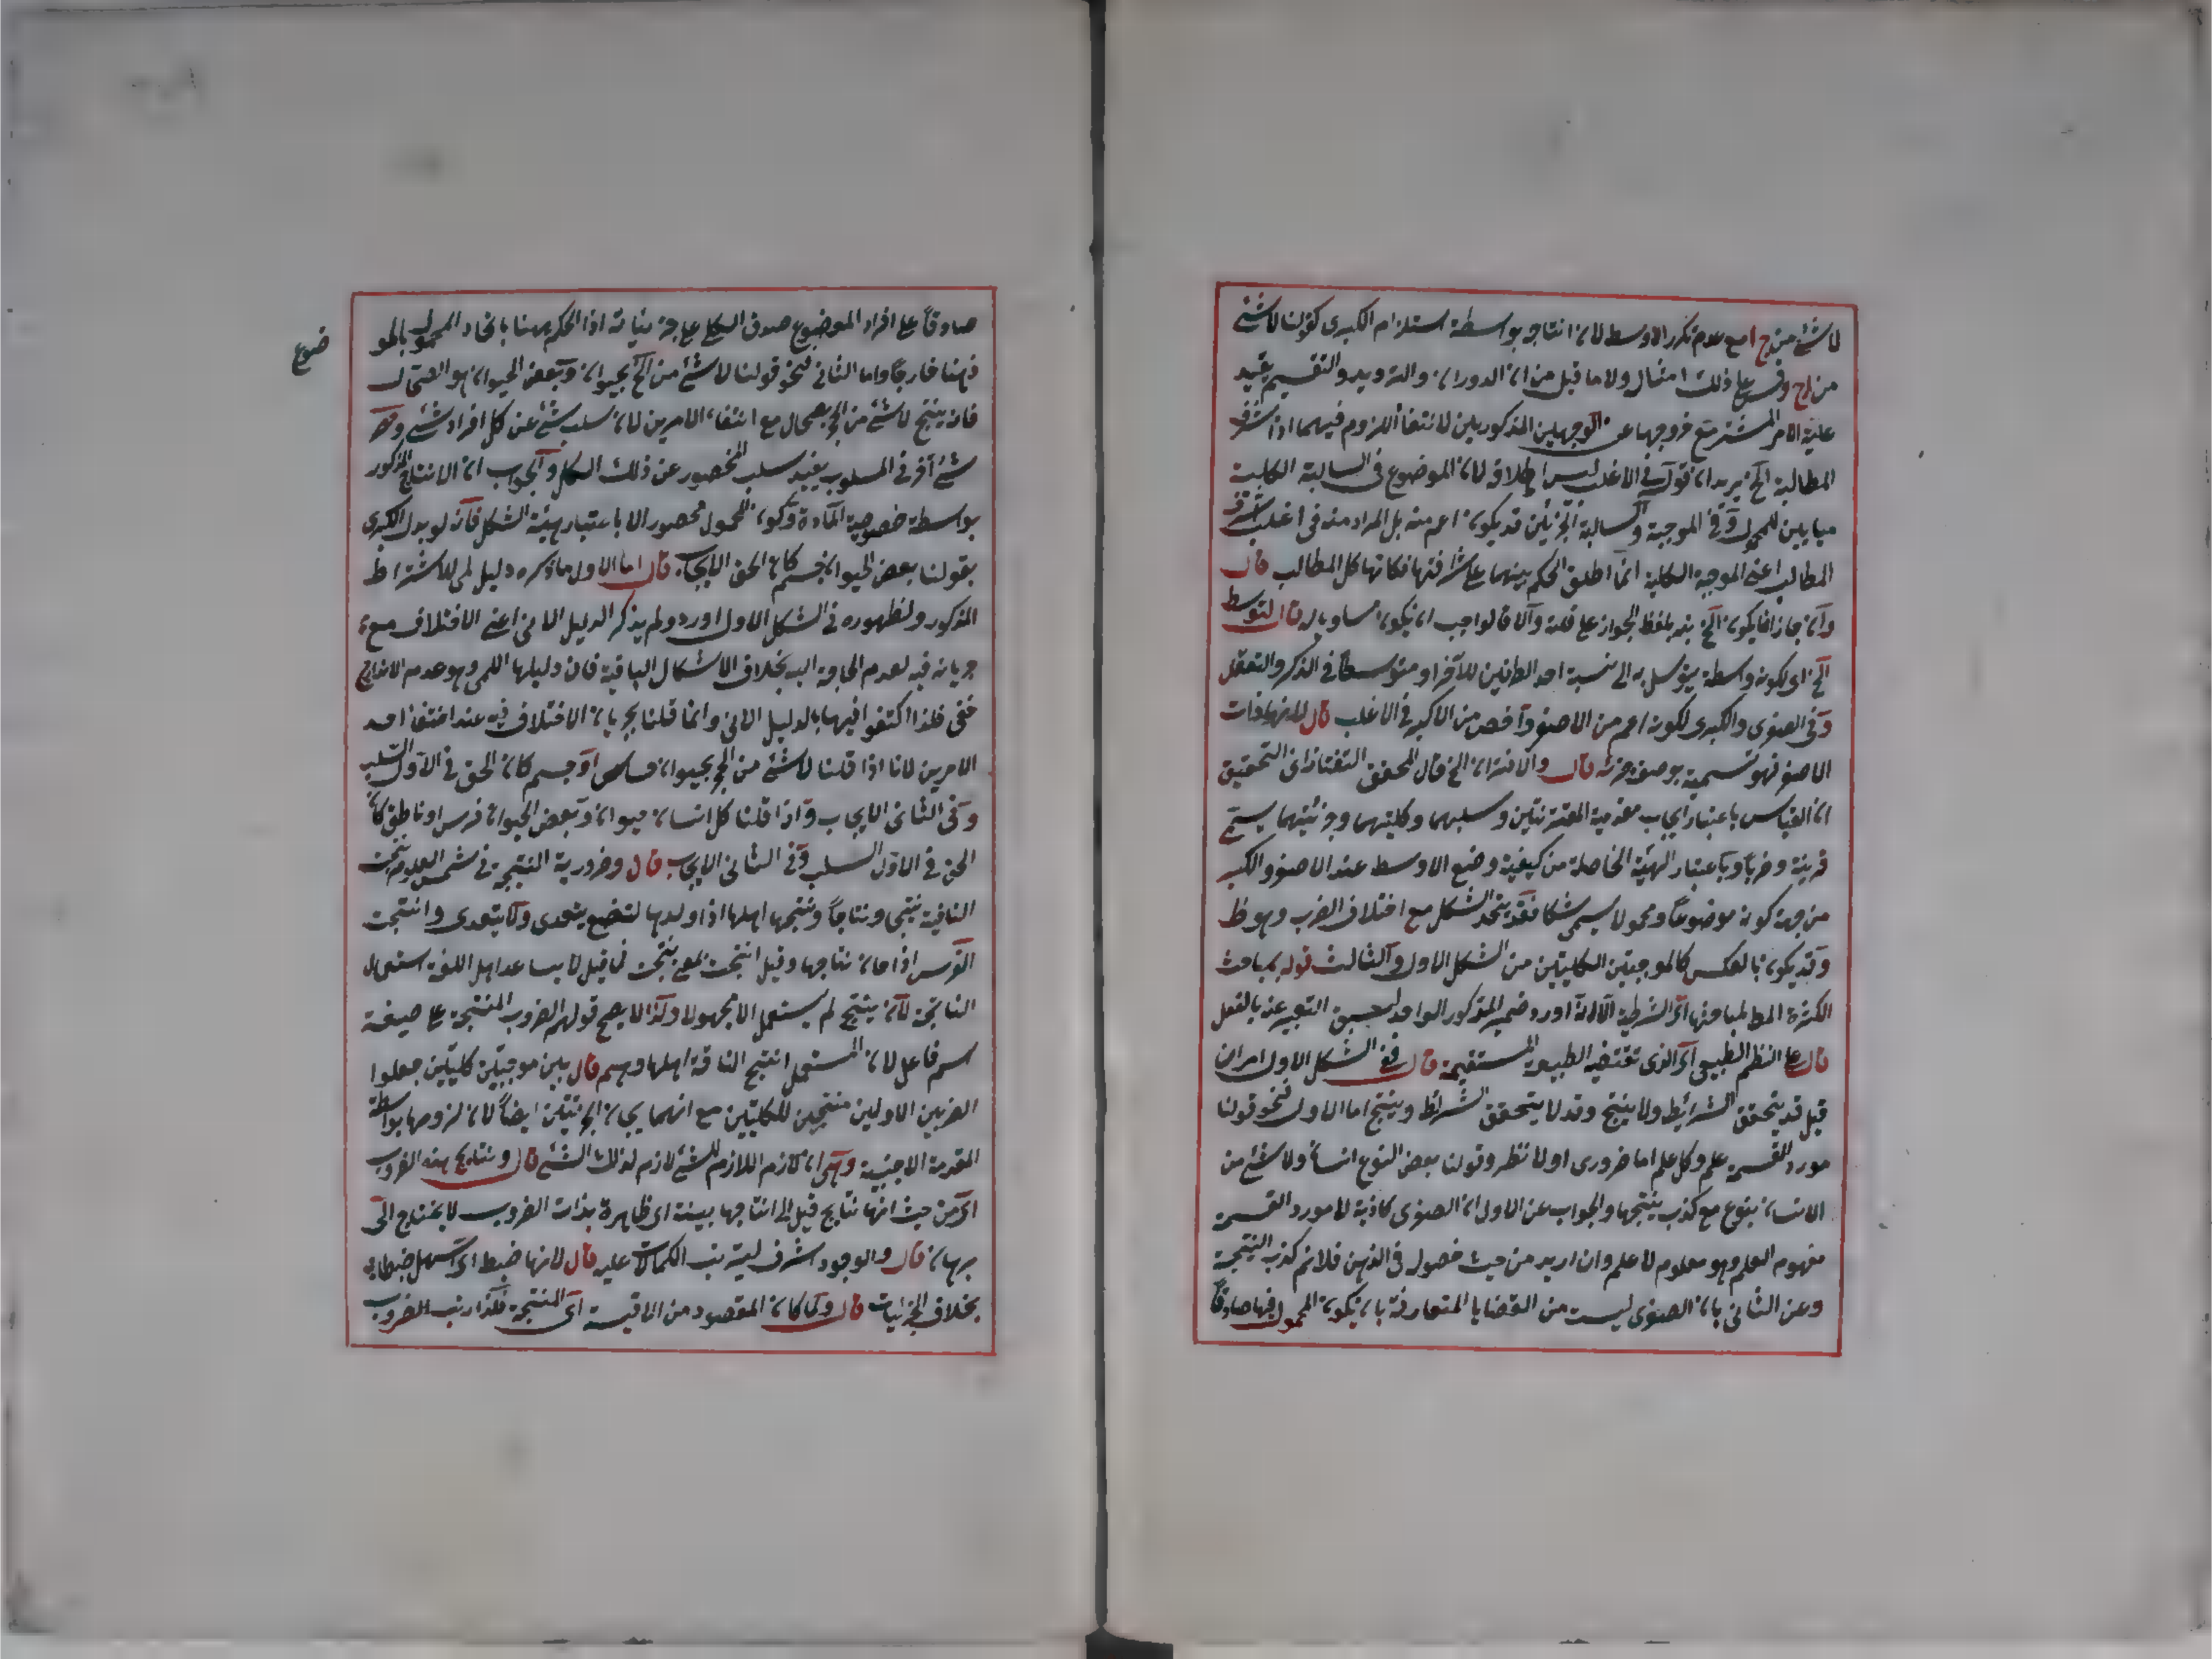 لا شئ من ج ا مع عدم تكرر الاوسط لان انتاجه بواسطة استلزام الكبرى كقولنا لا شئ
من ا ج وقس على ذلك امثال ولا ما قيل من ان الدوران والترديد والتقسيم يفيد
علية الامر المشترك مع خروجها عن الوجهين المذكورين لانتفاء اللزوم فيهما اذا شرف
المطالبة الخ يريد ان قوله في الاغلب ليس اطلاقه لان الموضوع في السالبة الكلية
مباين للمحمول وفي الموجبة والسالبة الجزئيتين قد يكون اعم منه بل المراد منه في اغلب اشرف
المطالب اعني الموجبة الكلية انما اطلق الحكم بينهما على شرافتها فكانها كل المطالب قال
وان جاز ان يكون الخ نبه بلفظ الجواز على قلته والا فالواجب ان يكون مساويا له قال لتوسط
الخ اى لكونه واسطة يتوسل به الى نسبة احد الطرفين للآخر او متوسطا في الذكر والتعقل
وفي الصغرى والكبرى لكونه اعم من الاصغر واخص من الاكبر في الاغلب قال لانها ذات
الاصغر فهو تسمية بوصف جزئه قال والاقتران الخ قال المحقق التفتازاني التحقيق
ان القياس باعتبار ايجاب مقدميه المقترنتين وسلبهما وكليتهما وجزئيتهما يسمى
قرينة وضربا وباعتبار الهيئة الحاصلة من كيفية وضع الاوسط عند الاصغر والاكبر
من جهة كونه موضوعا ومحمولا يسمى شكلا فقد يتحد الشكل مع اختلاف الضرب وهو ظ
وقد يكون بالعكس كالموجبتين الكليتين من الشكل الاول والثالث قوله بمباحث
الكثرة المط لمباحثها اى الشرطية الا انه اورد ضمير المذكور الواحد لسبق التعبير عنه بالفعل
قال على النظم الطبيعى اى الذى تقتضيه الطبيعة المستقيمة قال ففي الشكل الاول امران
قيل قد يتحقق الشرائط ولا ينتج وقد لا يتحقق الشرائط وينتج اما الاول فنحو قولنا
مورد القسمة علم وكل علم اما ضرورى اولا نظر وقولنا بعض النوع انسان ولا شئ من
الانسان بنوع مع كذب نتيجتها والجواب عن الاول ان الصغرى كاذبة لا مورد القسمة
مفهوم العلم وهو معلوم لا علم وان اريد من حيث حصوله في الذهن فلا نم كذب النتيجة
وعن الثاني بان الصغرى ليست من القضايا المتعارفة بان يكون المحمول فيها صادقا
صادقا على افراد الموضوع صدق الكلى على جزئياته اذ الحكم ههنا باتحاد المحمول بالمو
ضوع
فههنا خارجا واما الثاني فنحو قولنا لا شئ من الحجر بحيوان وبعض الحيوان هو الضحاك
فانه ينتج لا شئ من الحجر بضحاك مع انتفاء الامرين لان سلب شئ عن كل افراد شئ وحصر
شئ آخر في المسلوب يفيد سلب المحصور عن ذلك الكل والجواب ان الانتاج المذكور
بواسطة خصوصية المادة وكون المحمول محصورا لا باعتبار هيئة الشكل فانه لو بدل الكبرى
بقولنا بعض الحيوان جسم كان الحق الايجاب قال اما الاول ما ذكره دليل لمى للاشتراط
المذكور ولظهوره في الشكل الاول اورده ولم يذكر الدليل الانى اعني الاختلاف مع
جريانه فيه لعدم الحاجة اليه بخلاف الاشكال الباقية فان دليلها اللمى وهو عدم الاندراج
خفى فلذا اكتفوا فيها بالدليل الانى وانما قلنا بجريان الاختلاف فيه عند انتفاء احد
الامرين لانا اذا قلنا لا شئ من الحجر بحيوان وكل حيوان حساس او جسم كان الحق في الاول السلب
وفي الثاني الايجاب واذا قلنا كل انسان حيوان وبعض الحيوان فرس او ناطق كان
الحق في الاول السلب وفي الثاني الايجاب قال وضرورية النتيجة في شمس العلوم نتجت
الناقة نتجى ونتاجا ونتجها اهلها اذا ولدها لتضع يتعدى ولا يتعدى وانتجت
الفرس اذا حان نتاجها وقيل انتجت بمعنى نتجت فما قيل لا يساعد اهل اللغة استعمال
الناتجة لان ينتج لم يستعمل الا مجهولا ولذا لا يصح قولهم الضروب المنتجة على صيغة
اسم فاعل لان المستعمل انتج الناقة اهلها وهم قال بين موجبتين كليتين جعلوا
الضربين الاولين منتجين للكليتين مع انهما ينتجان الجزئيتين ايضا لان لزومها بواسطة
المقدمة الاجنبية وهى ان لازم اللازم للشئ لازم لذلك الشئ قال ونتايج هذه الضروب
اى من حيث انها نتايج قيل الى انتاجها بينة اى ظاهرة بذات الضروب لا يحتاج الى
برهان قال والوجود اشرف لترتب الكمالات عليه قال لانها اضبط اى اسهل ضبطا به
بخلاف الجزئيات قال ولما كان المقصود من الاقيسة اى النتيجة فلذا رتب الضروب